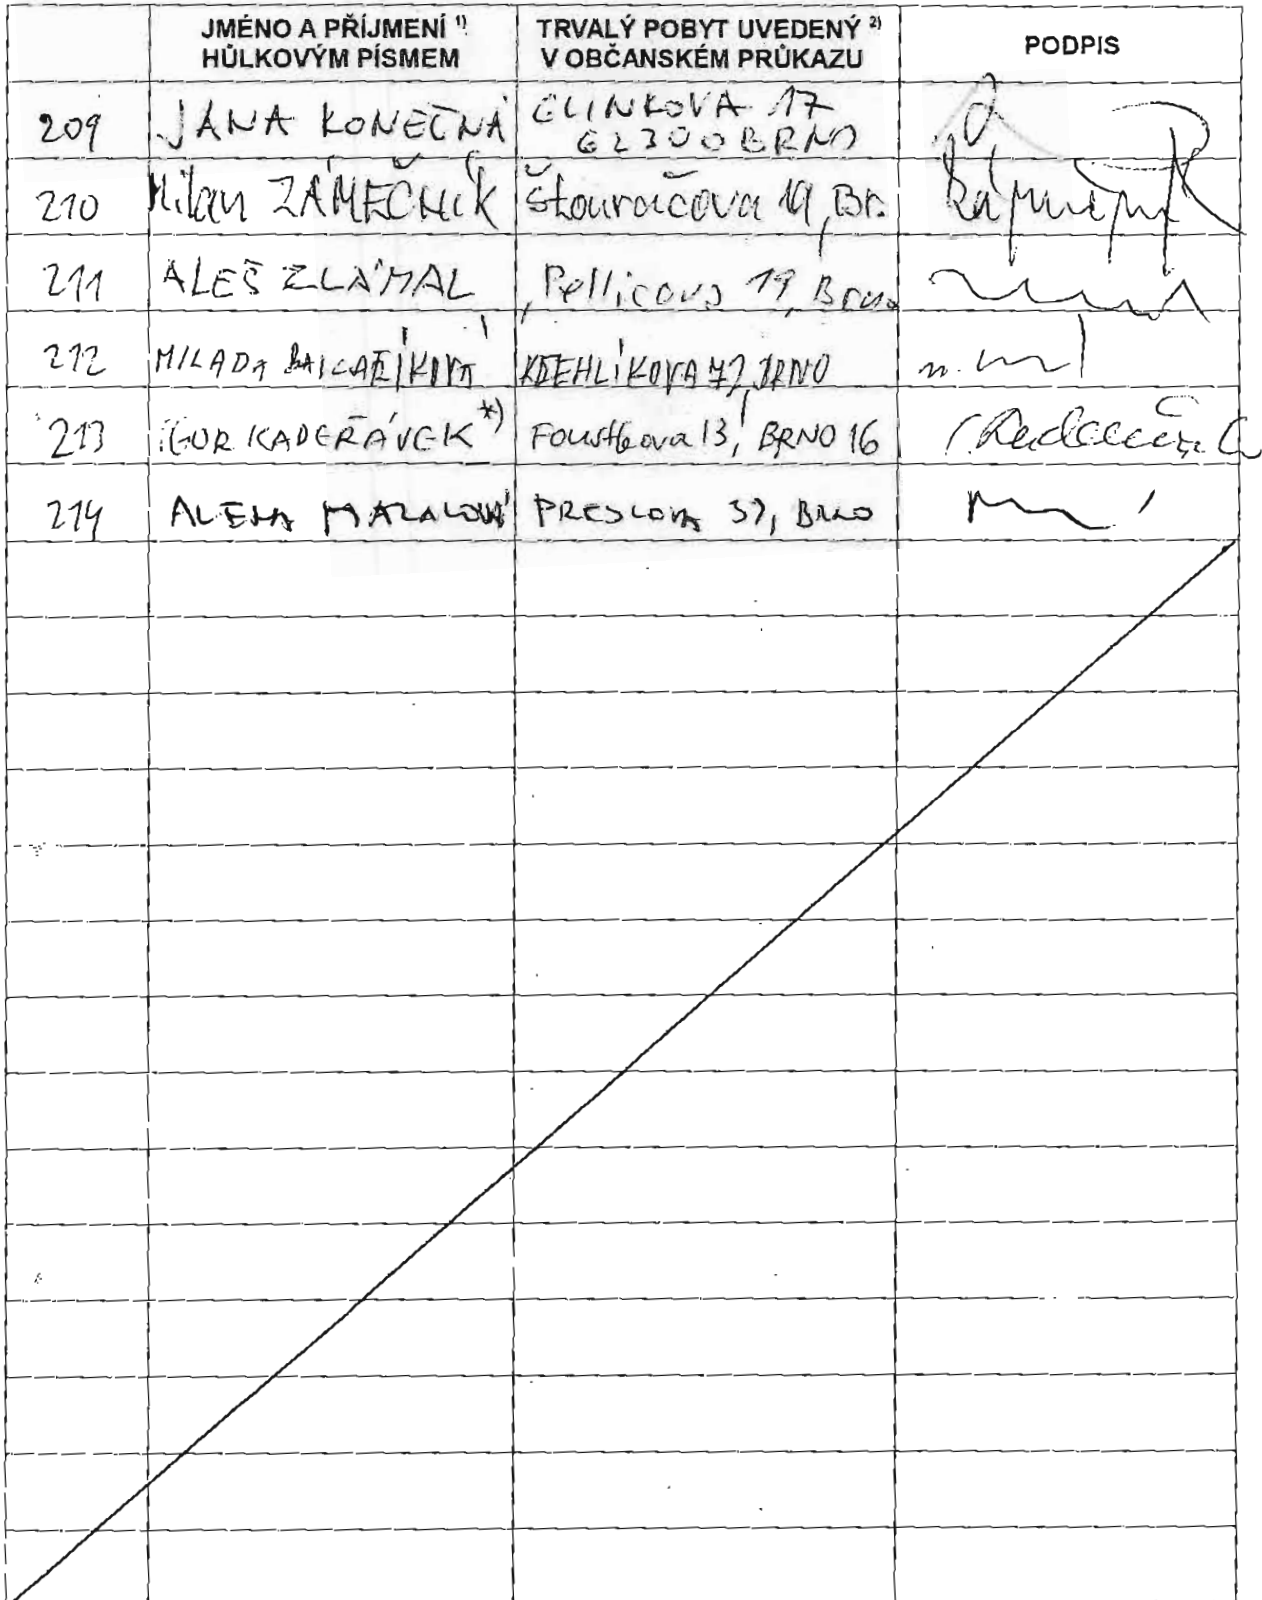 JMÉNO A PŘÍJMENÍ 1)
HŮLKOVÝM PÍSMEM
TRVALÝ POBYT UVEDENÝ 2)
V OBČANSKÉM PRŮKAZU
PODPIS
209 JANA KONEČNÁ ELINKOVA 17
62300 BRNO
210 Milan ZÁMEČNÍK Štouračova 19, Br.
211 ALEŠ ZLÁMAL Pellicova 19, Brno
212 MILADA BRNO
213 IGOR KADEŘÁVEK *) 13, BRNO 16
214 ALENA MAZALOVÁ PRESLOVA 37, BRNO